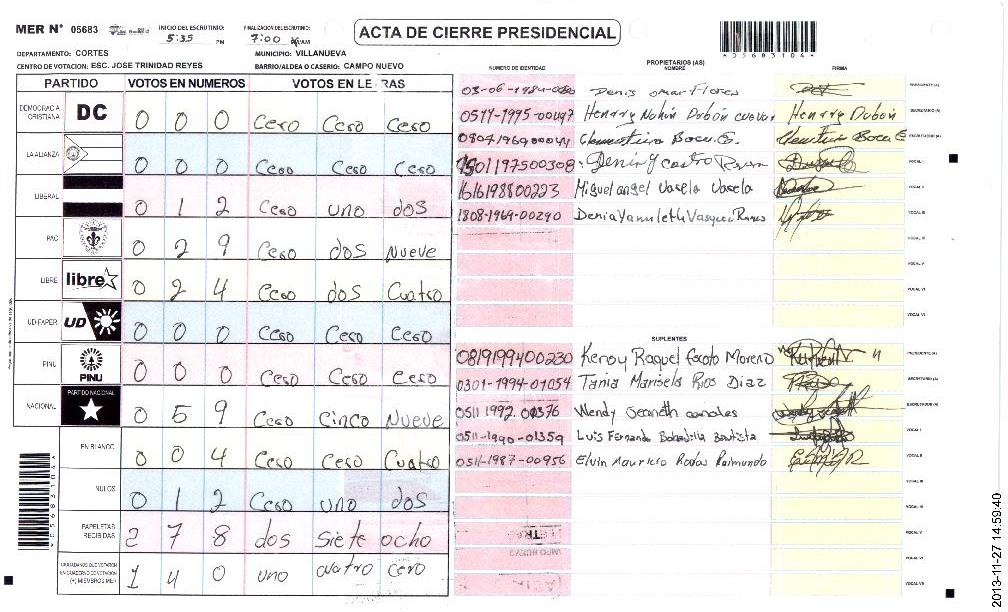 MER N° 05683 INICIO DEL ESCRUTINIO: 5:35 PM FINALIZACION DEL ESCRUTINIO: 7:00 AM ACTA DE CIERRE PRESIDENCIAL *05683104*
DEPARTAMENTO: CORTES MUNICIPIO: VILLANUEVA
CENTRO DE VOTACION: ESC. JOSE TRINIDAD REYES BARRIO/ALDEA O CASERIO: CAMPO NUEVO
PARTIDO VOTOS EN NUMEROS VOTOS EN LETRAS
DEMOCRACIA CRISTIANA DC 0 0 0 Cero Cero Cero
LA ALIANZA 0 0 0 Cero Cero Cero
LIBERAL 0 1 2 Cero uno dos
PAC 0 2 9 Cero dos Nueve
LIBRE libre 0 2 4 Cero dos Cuatro
UD-FAPER UD 0 0 0 Cero Cero Cero
PINU PINU 0 0 0 Cero Cero Cero
NACIONAL PARTIDO NACIONAL 0 5 9 Cero Cinco Nueve
EN BLANCO 0 0 4 Cero Cero Cuatro
NULOS 0 1 2 Cero uno dos
PAPELETAS RECIBIDAS 2 7 8 dos siete ocho
CIUDADANOS QUE VOTARON EN CUADERNO DE VOTACION (+) MIEMBROS MER 1 4 0 uno cuatro cero
*05683104*
NUMERO DE IDENTIDAD PROPIETARIOS (AS) NOMBRE FIRMA
Denis omar Flores PRESIDENTE (A)
0517-1995-00497 Henrry Nahún Dubón cuevas Henrry Dubón SECRETARIO (A)
Clementino Boca G. ESCRUTADOR (A)
Denis y castro VOCAL I
1616198800223 Miguel angel Varela Varela VOCAL II
1808-1969-00290 Denia Yamileth Vasquez Ramos VOCAL III
VOCAL V
VOCAL VI
SUPLENTES
0819199400230 Keroy Raquel Escoto Moreno PRESIDENTE (A)
0301-1994-01054 Tania Marisela Rios Diaz SECRETARIO (A)
0511 1992. 00376 Wendy Jeaneth canales ESCRUTADOR (A)
0511-1990-01359 Luis Fernando Bobadilla Bautista VOCAL I
0511-1987-00956 Elvin Mauricio Rodas Raimundo VOCAL II
VOCAL III
VOCAL V
VOCAL VI
2013-11-27 14:59:40